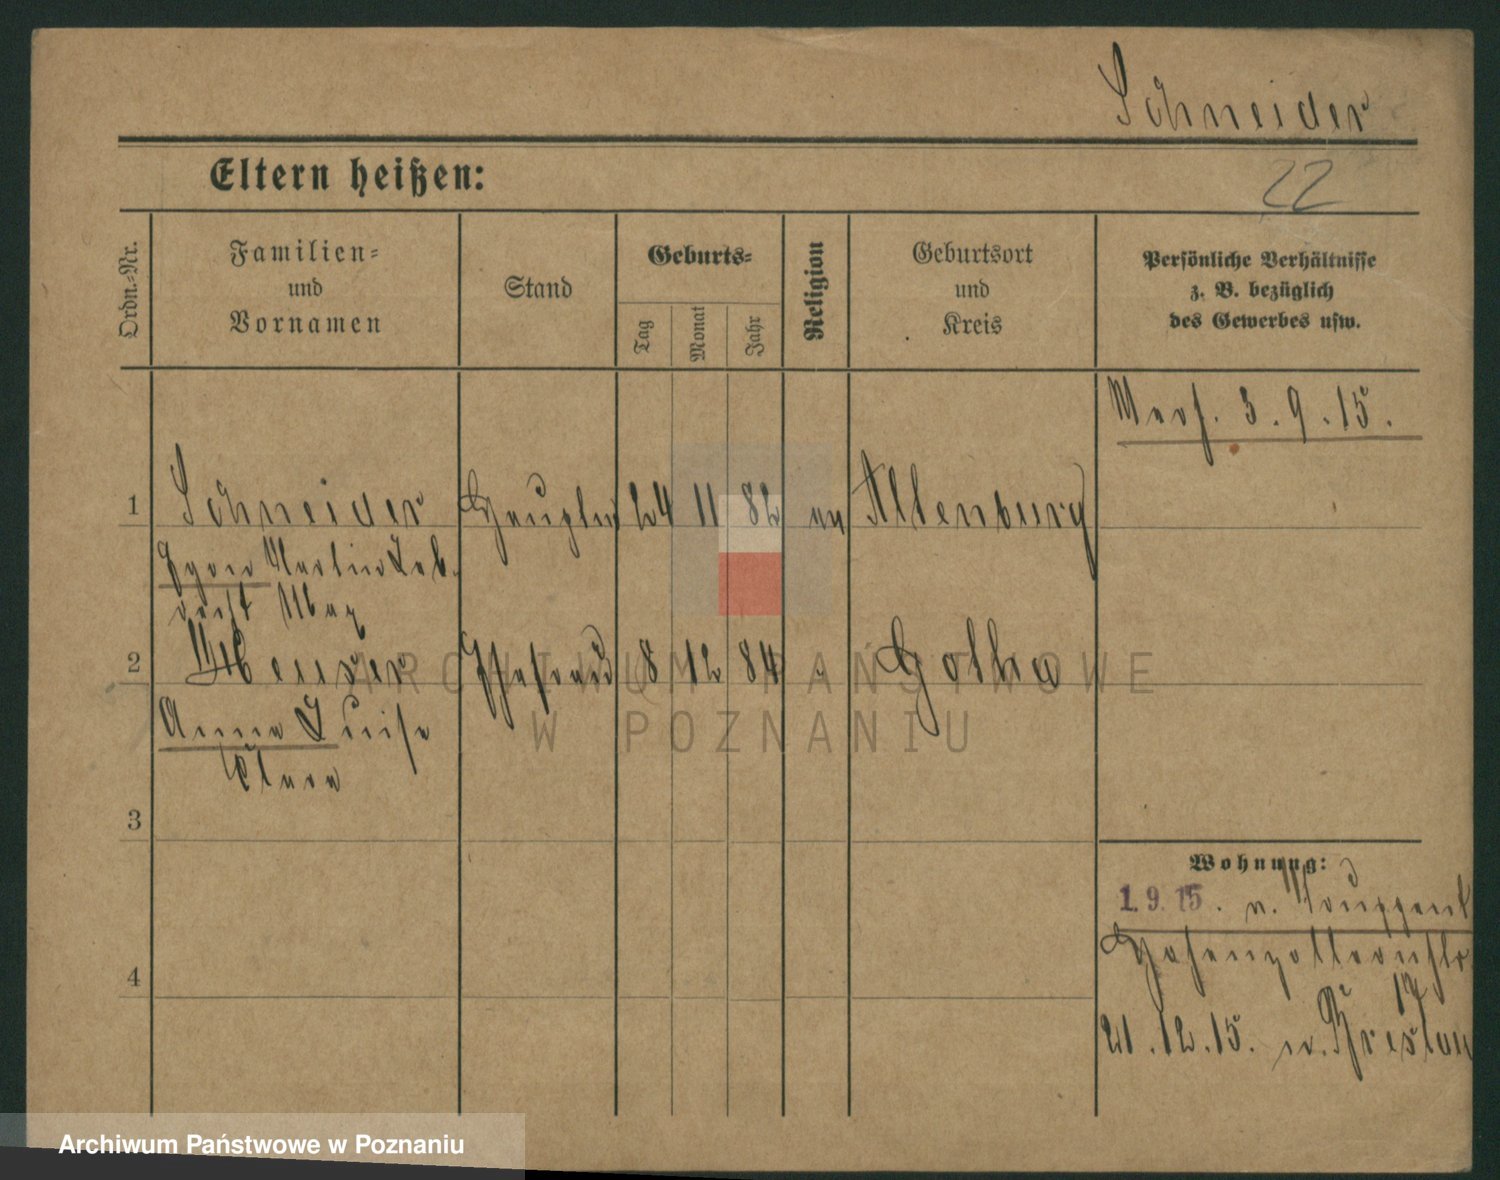 Schneider
Eltern heißen:
22
Ordn.-Nr.
Familien-
und
Vornamen
Stand
Geburts-
Tag
Monat
Jahr
Religion
Geburtsort
und
Kreis
Persönliche Verhältnisse
z. B. bezüglich
des Gewerbes usw.
3.9.15.
1 Schneider Hauptm 24 11 82 ev Altenburg
Egon Martin
Max
2 Meuser Ehefrau 8 12 84 " Gotha
Anna Luise
Clara
3
4
Wohnung:
1.9.15. v.
Hohenzollernstr
17
21.12.15. n. Breslau
ARCHIWUM PAŃSTWOWE
W POZNANIU
Archiwum Państwowe w Poznaniu